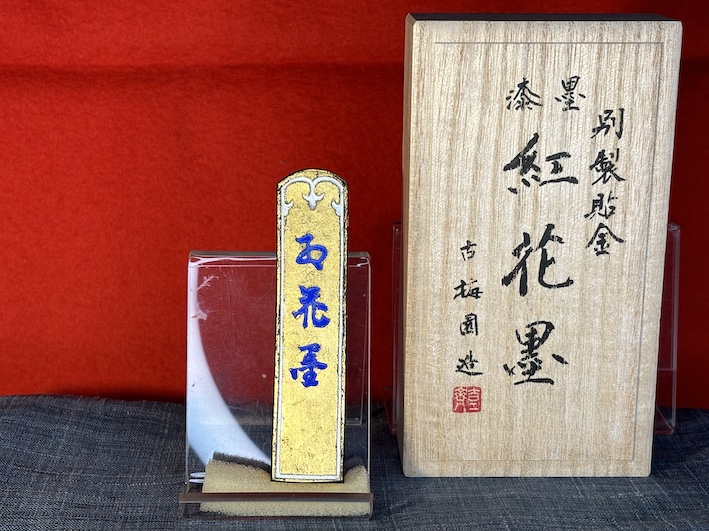 別製貼金
漆墨
紅花墨
古梅園造
お花墨